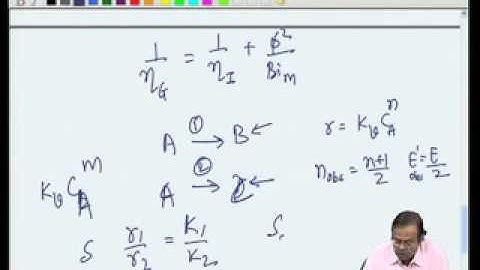 1/η_G = 1/η_I + φ²/Bi_m
A ①→ B ←
r = K_v C_A^n
n_obs = (n+1)/2 E'_obs = E/2
K_v C_A^m
A ②→ D ←
S r₁/r₂ = K₁/K₂ S.